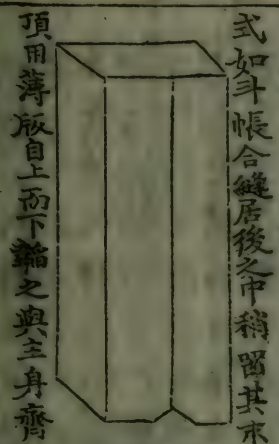 式如斗帳合縫居後之中稍留其末
頂用薄版自上而下韜之與主身齊